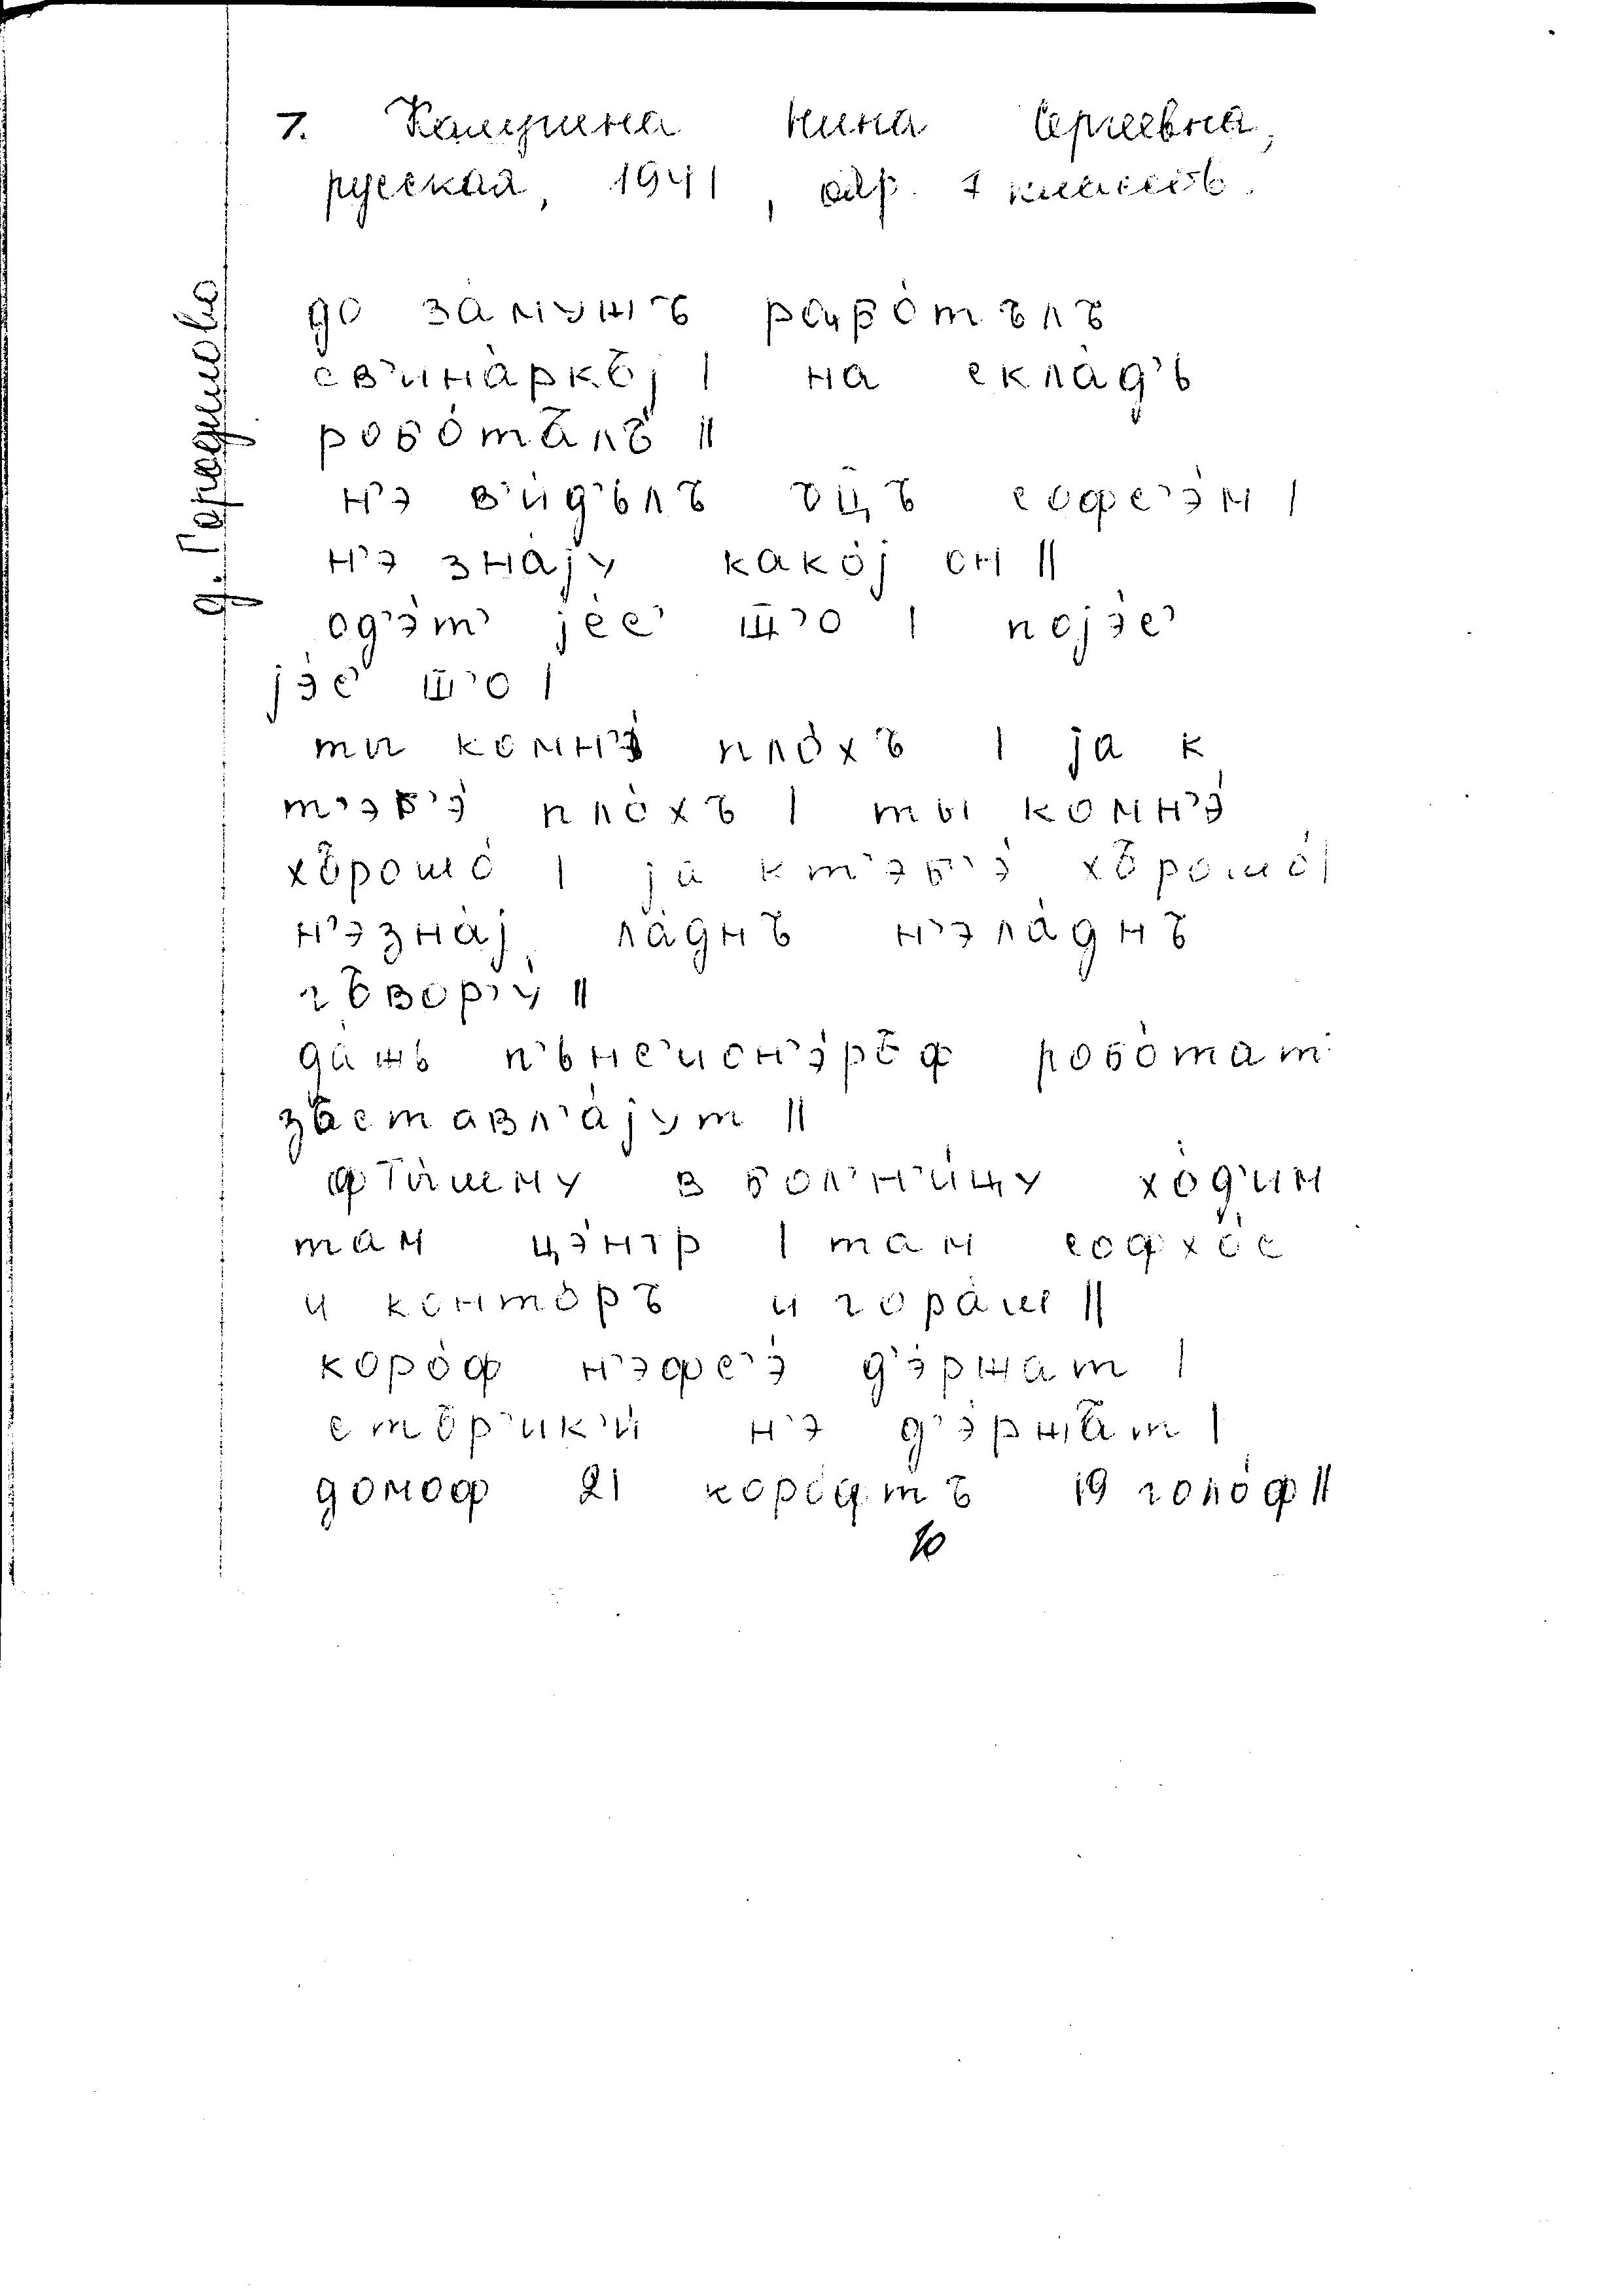 д. Городилово
7. Калугина Нина Сергеевна,
русская, 1941, обр. 7 классов.
до за́мужъ рабо́тълъ
св'ина́ркъj | на скла́д'ь
робо́тълъ ||
н'э в'и́д'ълъ ъц̄ъ софс'э́м |
н'э зна́jу како́j он ||
од'э́т' jе́с' ш̄'о | поjэ́с'
jэ́с' ш̄'о |
ты комн'э́ пло́хъ | jа к
т'эб'э́ пло́хъ | ты комн'э́
хърошо́ | jа к т'эб'э́ хърошо́ |
н'эзна́j ла́днъ н'эла́днъ
гъвор'у́ ||
да́жь п'ьнс'ион'э́ръф робо́тат'
зъставл'а́jут ||
в бол'н'и́цу хо́д'им
там цэ́нтр | там софхо́с
и конто́ръ и гора́ш ||
коро́ф н'эфс'э́ д'э́ржат |
стър'ик'и́ н'э д'э́ржат |
домоф 21 коро́фтъ 19 голо́ф ||
10